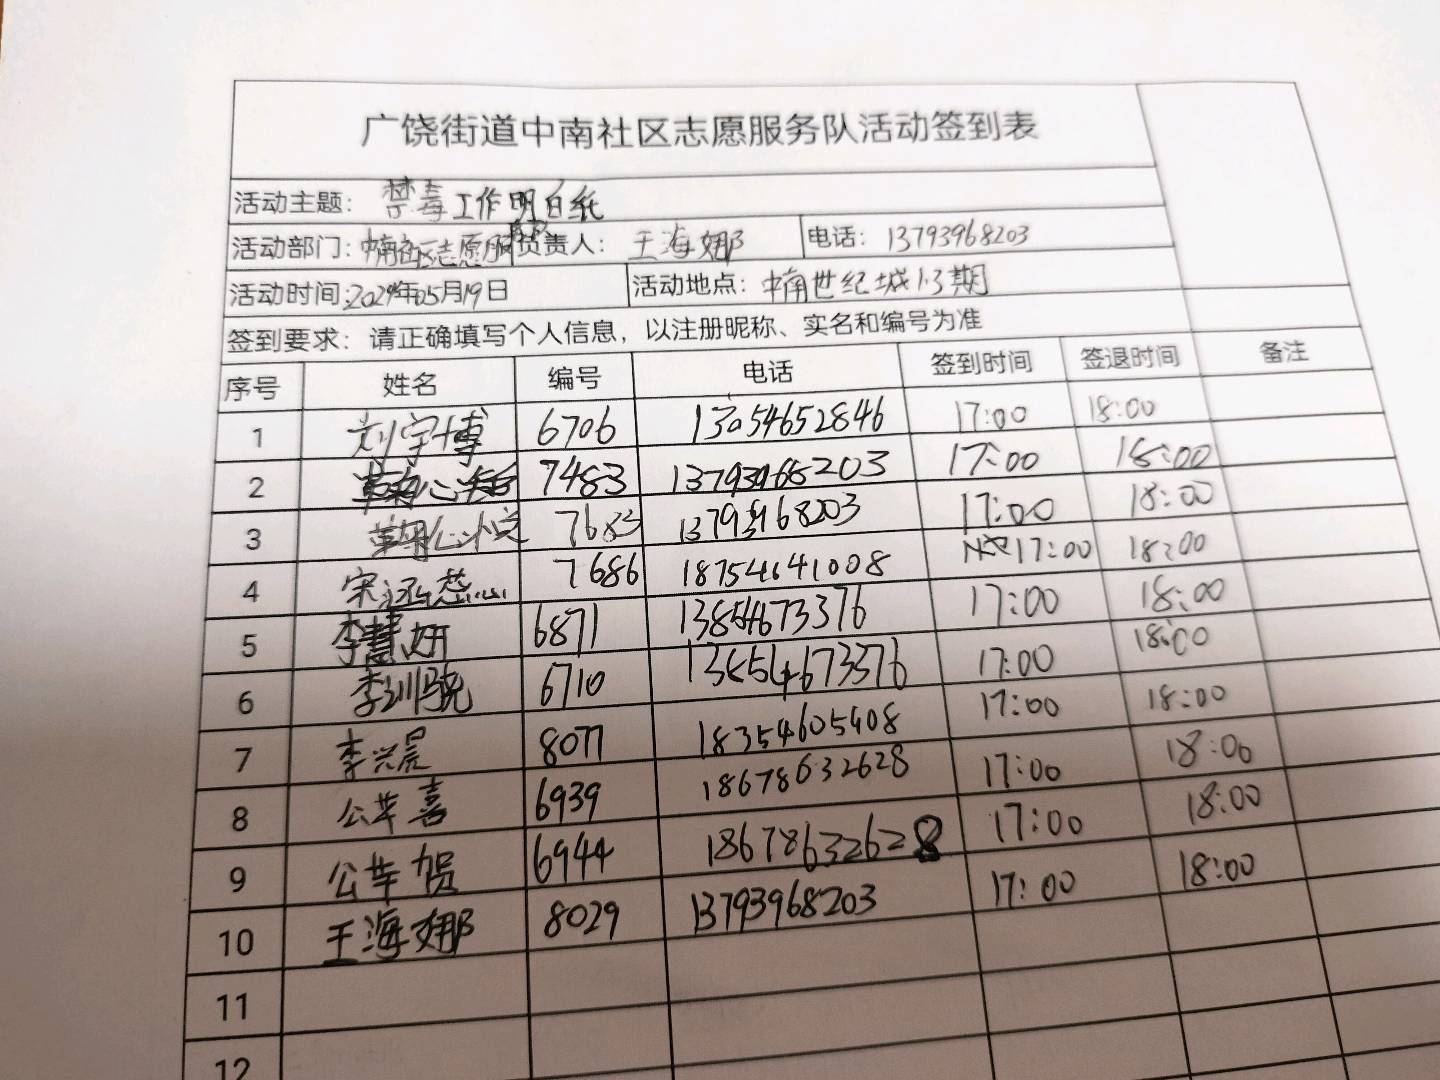 广饶街道中南社区志愿服务队活动签到表
活动主题：禁毒工作明白纸
活动部门：中南社区志愿服 负责人：王海娜 电话：13793968203
活动时间：2024年05月19日 活动地点：中南世纪城1.3期
签到要求：请正确填写个人信息，以注册昵称、实名和编号为准
序号 姓名 编号 电话 签到时间 签退时间 备注
1 刘宇博 6706 13054652846 17:00 18:00
2 7483 13793968203 17:00 18:00
3 7683 13793968203 17:00 18:00
4 宋涵蕊 7686 18754641008 17:00 18:00
5 李慧妍 6871 13854673376 17:00 18:00
6 李训骁 6710 13854673376 17:00 18:00
7 李兴晨 8077 18354605408 17:00 18:00
8 公苹喜 6939 18678632628 17:00 18:00
9 公苹贺 6944 18678632628 17:00 18:00
10 王海娜 8029 13793968203 17:00 18:00
11
12